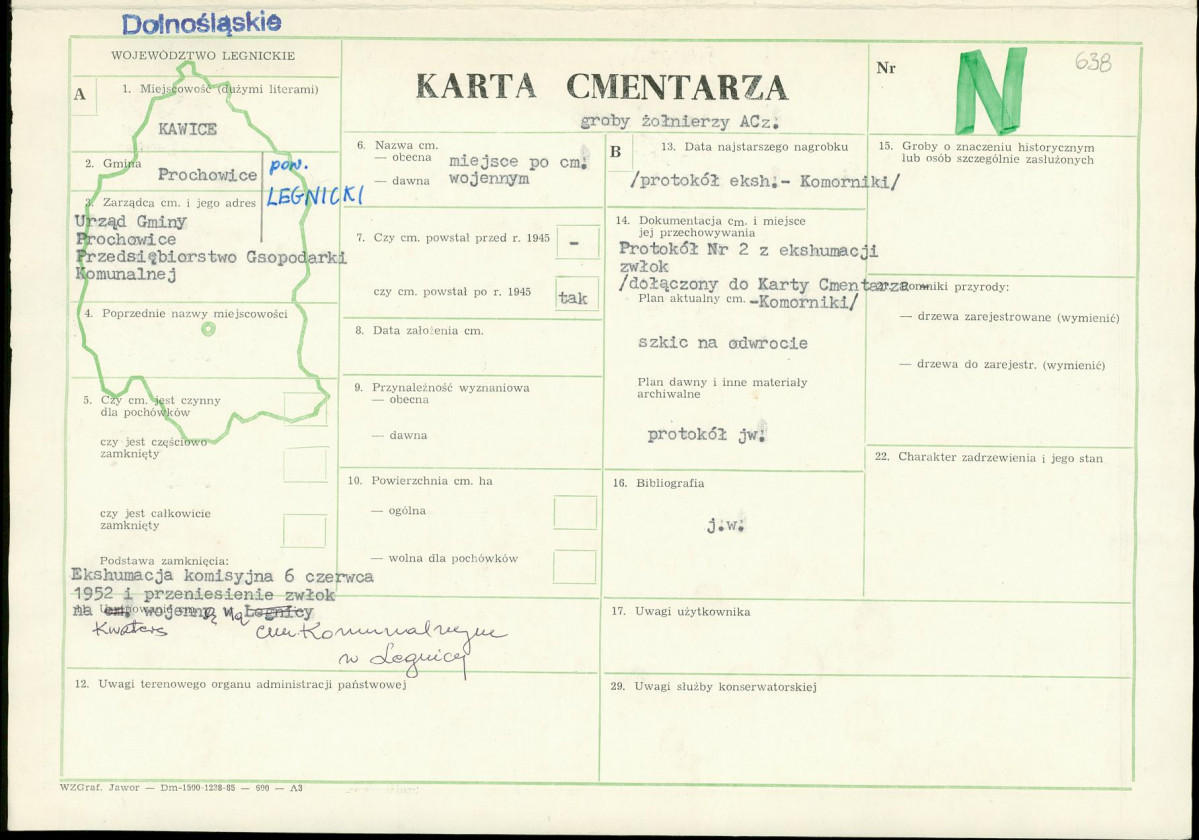 Dolnośląskie
WOJEWÓDZTWO LEGNICKIE
A
1. Miejscowość (dużymi literami)
KAWICE
2. Gmina
Prochowice
pow.
LEGNICKI
3. Zarządca cm. i jego adres
Urząd Gminy
Prochowice
Przedsiębiorstwo Gsopodarki
Komunalnej
4. Poprzednie nazwy miejscowości
5. Czy cm. jest czynny
dla pochówków
czy jest częściowo
zamknięty
czy jest całkowicie
zamknięty
Podstawa zamknięcia:
Ekshumacja komisyjna 6 czerwca
1952 i przeniesienie zwłok
na cm. wojenną na Legnicy
Kwaterę cm. Komunalnym
w Legnicy
12. Uwagi terenowego organu administracji państwowej
KARTA CMENTARZA
groby żołnierzy ACz.
6. Nazwa cm.
— obecna miejsce po cm.
— dawna wojennym
7. Czy cm. powstał przed r. 1945 -
czy cm. powstał po r. 1945 tak
8. Data założenia cm.
9. Przynależność wyznaniowa
— obecna
— dawna
10. Powierzchnia cm. ha
— ogólna
— wolna dla pochówków
B
13. Data najstarszego nagrobku
/protokół eksh.- Komorniki/
14. Dokumentacja cm. i miejsce
jej przechowywania
Protokół Nr 2 z ekshumacji
zwłok
/dołączony do Karty Cmentarza -
Plan aktualny cm. -Komorniki/
szkic na odwrocie
Plan dawny i inne materiały
archiwalne
protokół jw.
16. Bibliografia
j.w.
17. Uwagi użytkownika
29. Uwagi służby konserwatorskiej
Nr
N
638
15. Groby o znaczeniu historycznym
lub osób szczególnie zasłużonych
Pomniki przyrody:
— drzewa zarejestrowane (wymienić)
— drzewa do zarejestr. (wymienić)
22. Charakter zadrzewienia i jego stan
WZGraf. Jawor — Dm-1590-1238-85 — 690 — A3